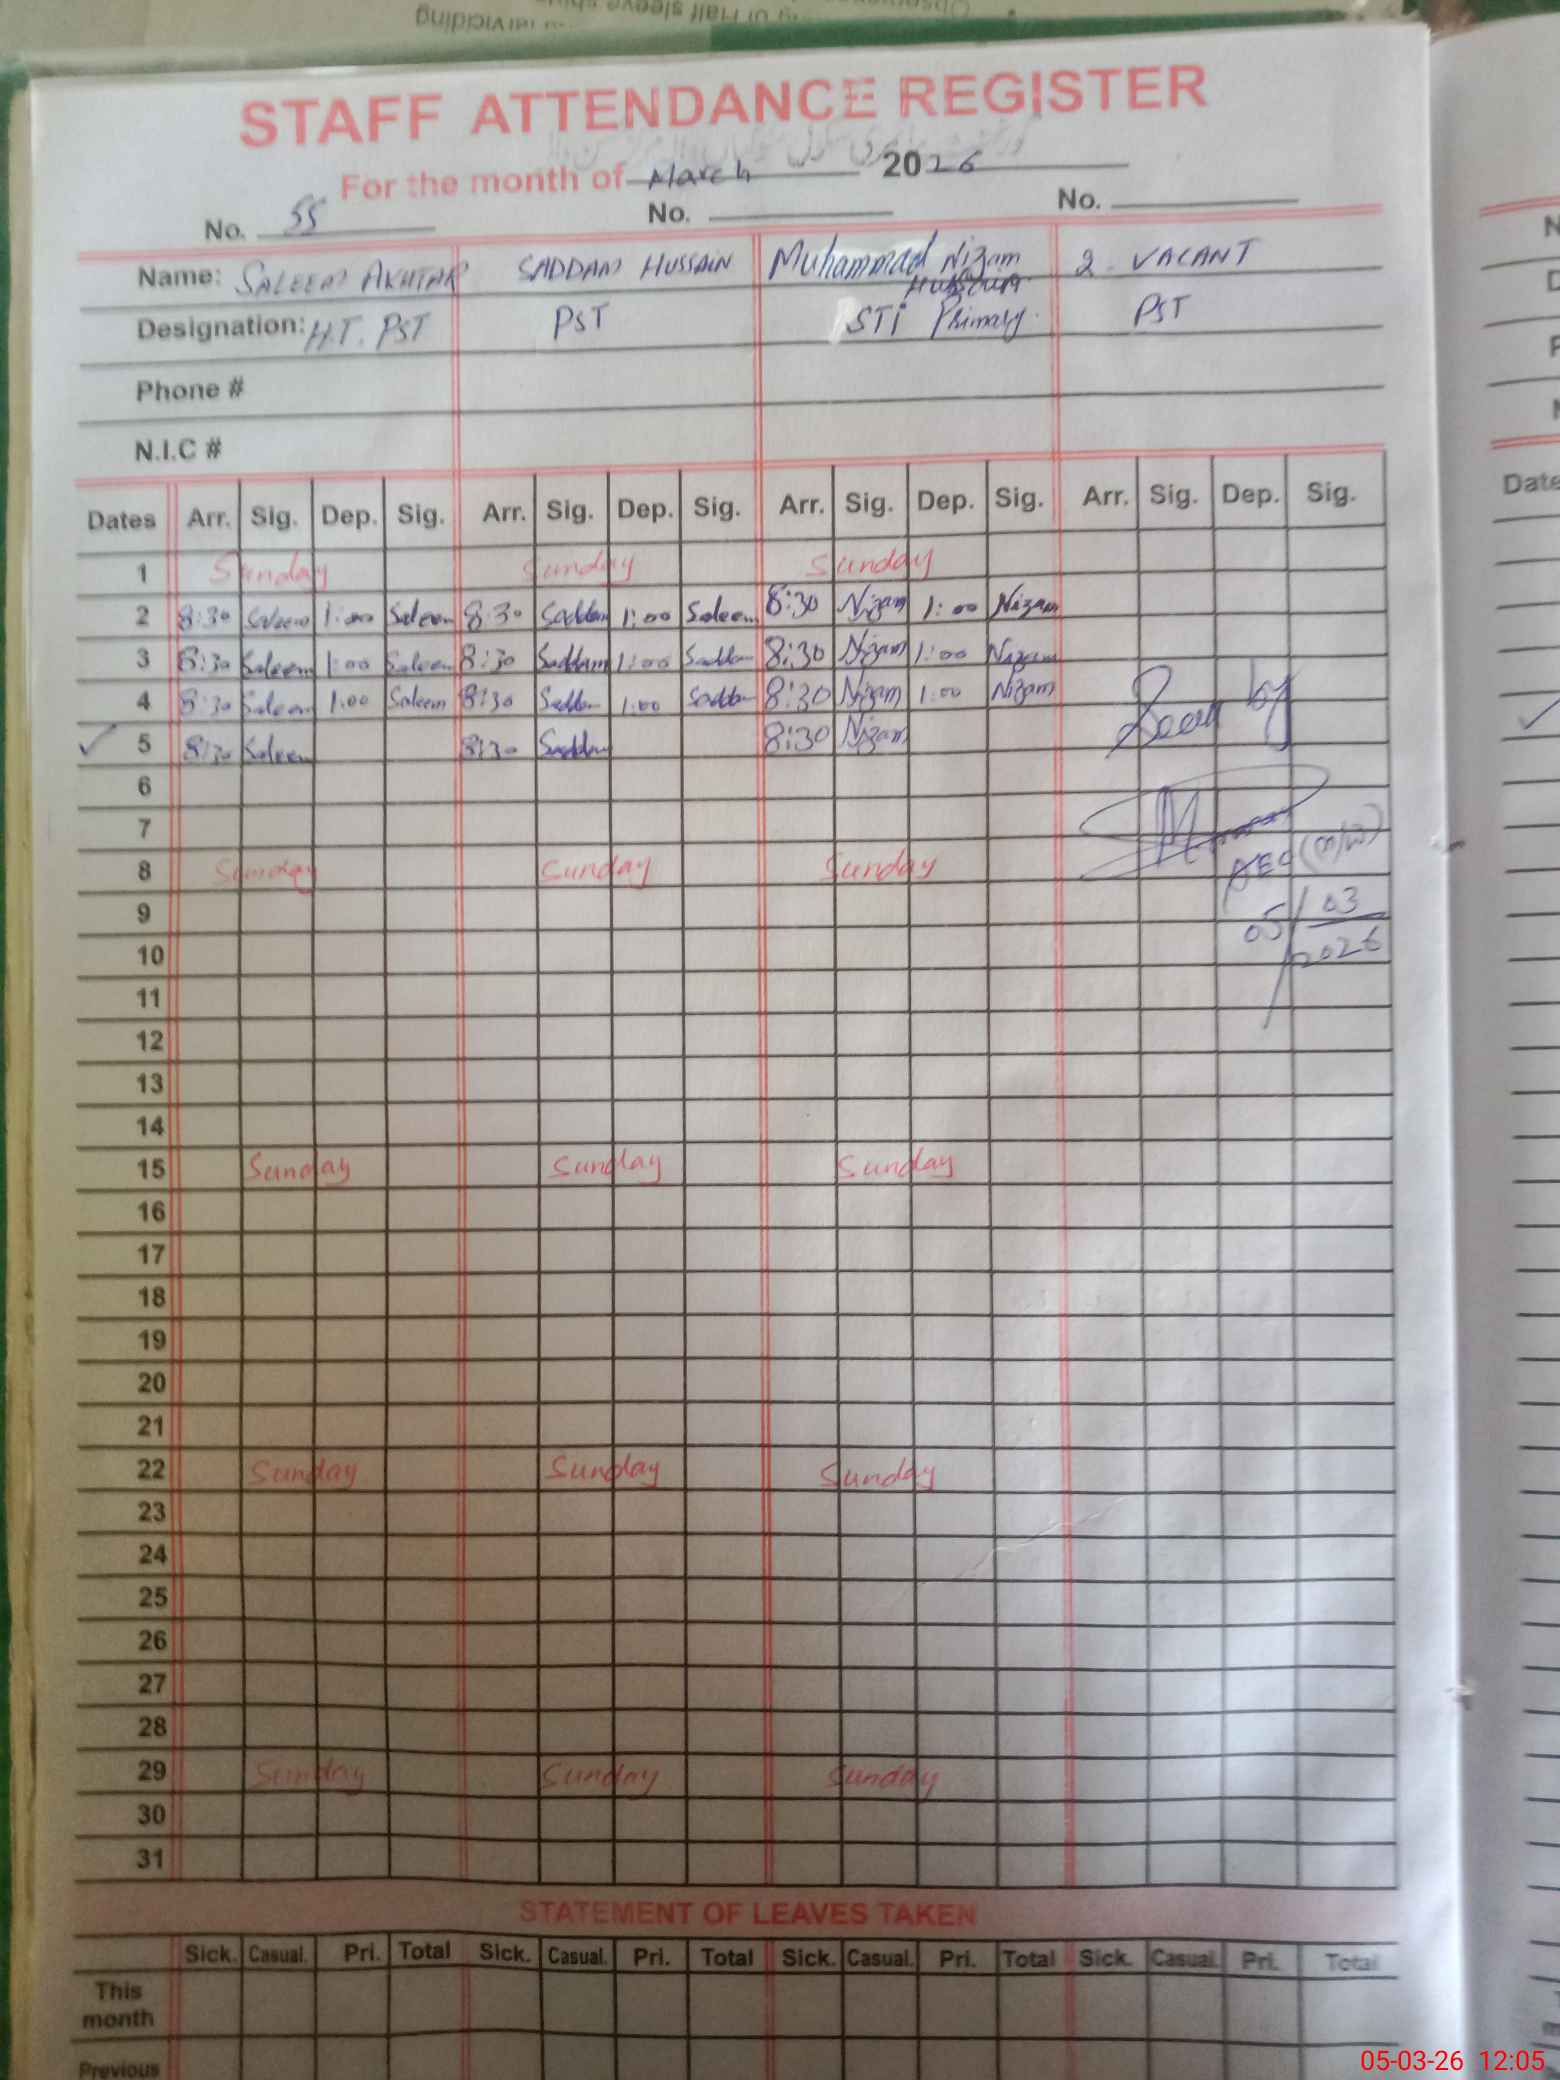 STAFF ATTENDANCE REGISTER
For the month of March 2026
No. 55 No. No.
Name: SALEEM AKHTAR SADDAM HUSSAIN Muhammad Nizam 2 - VACANT
Hussain
Designation: H.T. PST PST STI Primary. PST
Phone #
N.I.C #
Dates Arr. Sig. Dep. Sig. Arr. Sig. Dep. Sig. Arr. Sig. Dep. Sig. Arr. Sig. Dep. Sig.
1 Sunday Sunday Sunday
2 8:30 Saleem 1:00 Saleem 8:30 Saddam 1:00 Saleem 8:30 Nizam 1:00 Nizam
3 8:30 Saleem 1:00 Saleem 8:30 Saddam 1:00 Saddam 8:30 Nizam 1:00 Nizam
4 8:30 Saleem 1:00 Saleem 8:30 Saddam 1:00 Saddam 8:30 Nizam 1:00 Nizam
5 8:30 Saleem 8:30 Saddam 8:30 Nizam
Seen by
6
7
8 Sunday Sunday Sunday
AEO (M/W)
9
05/03
10
2026
11
12
13
14
15 Sunday Sunday Sunday
16
17
18
19
20
21
22 Sunday Sunday Sunday
23
24
25
26
27
28
29 Sunday Sunday Sunday
30
31
STATEMENT OF LEAVES TAKEN
Sick. Casual. Pri. Total Sick. Casual. Pri. Total Sick. Casual. Pri. Total Sick. Casual. Pri. Total
This
month
Previous
05-03-26 12:05